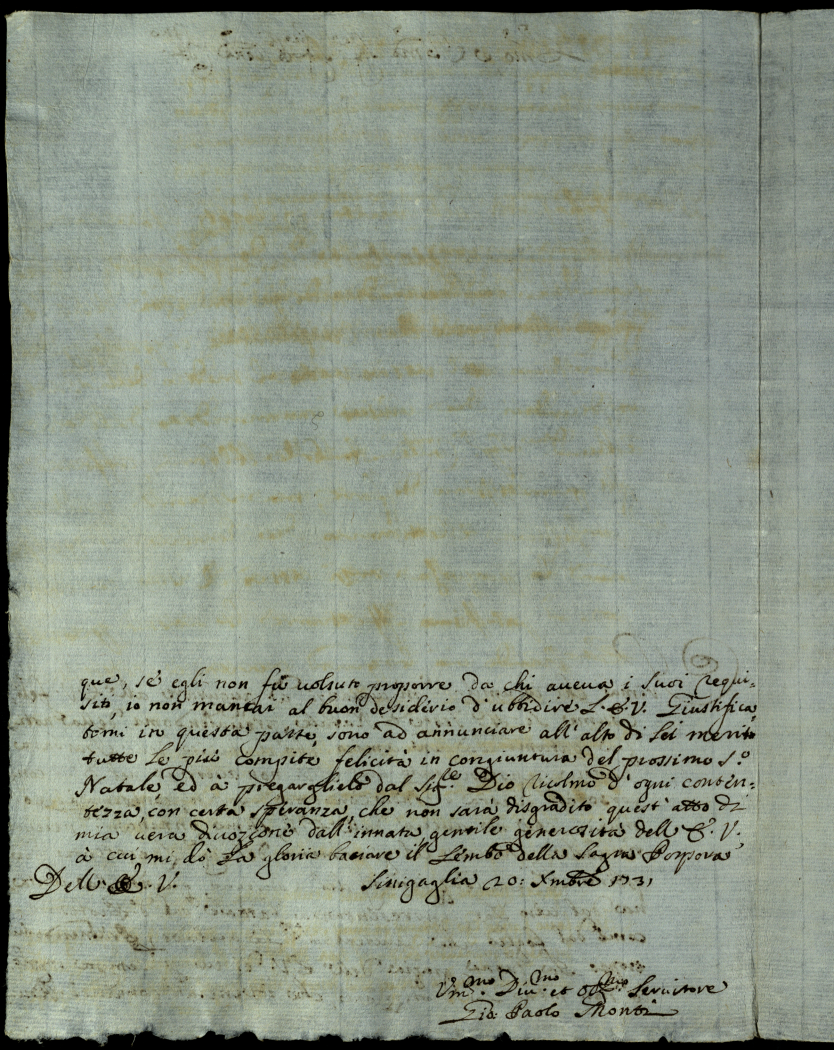 que, se egli non fù volsuto proporre da chi aueua i suoi requi-
siti, io non mancai al buon desiderio d'ubbidire L.E.V. Giustifica
tomi in questa parte, sono ad annunciare all'alto di Lei merito
tutte le più compite felicità in congiuntura del prossimo S.o
Natale, ed à pregarglielo dal Sig.re Dio ricolmo d'ogni conten-
tezza, con certa speranza, che non sarà disgradito quest'atto di
mia vera divozione dall'innata gentile generosità dell'E.V.
à cui mi dò la gloria baciare il Lembo della Sagra Porpora
Dell'E.V. Sinigaglia 20: Xmbre 1731
Vm.mo Div.mo et Obl.mo Servitore
Gio: Paolo Monti